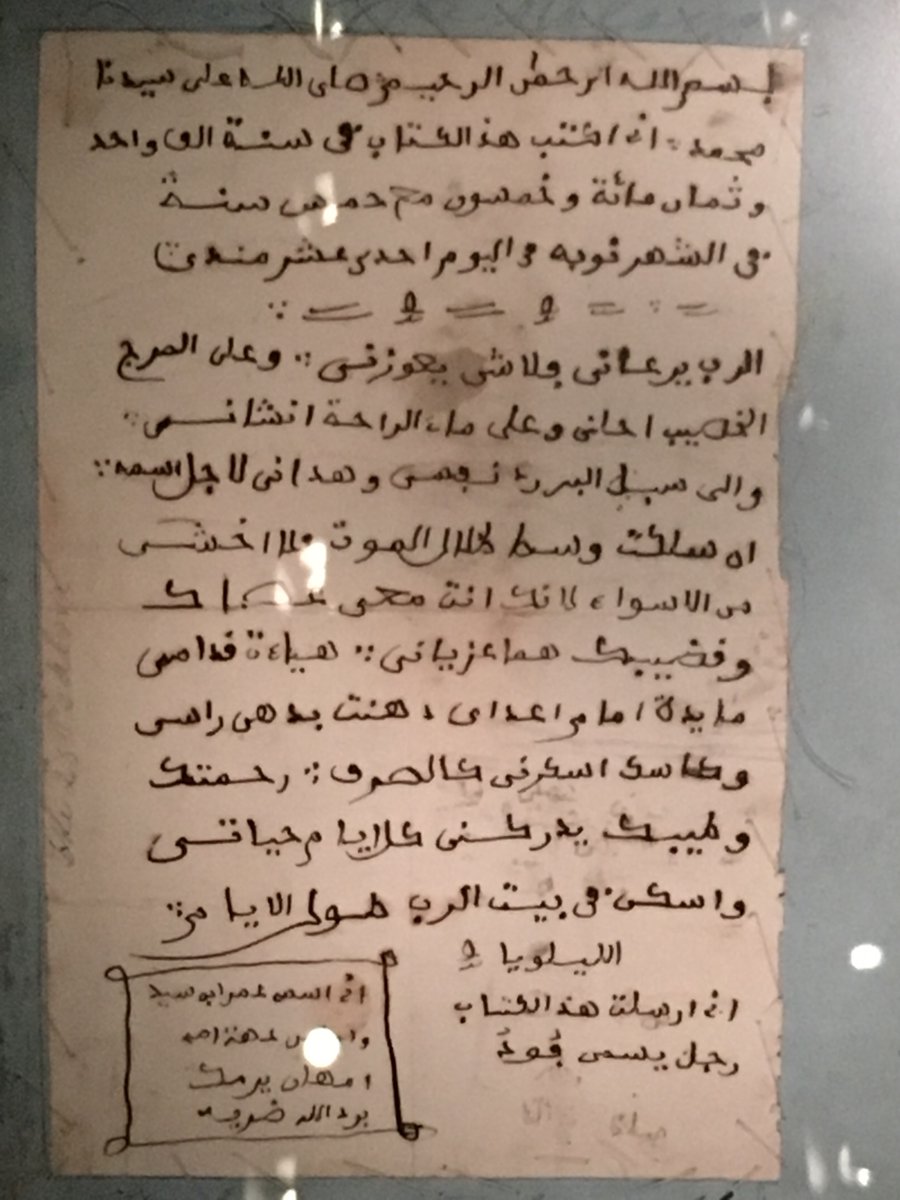 بسم الله الرحمن الرحيم صلى الله على سيدنا
محمد انا اكتب هذ الكتاب في سنة الف واحد
وثمان مائة وخمسون مع خمس سنة
في الشهر نوبه في اليوم احدى عشر
الرب يرعانى ولاشى يعوزنى وعلى المرج
الخصيب احلنى وعلى ماء الراحة انشانى
والى سبيل البر رد نفسى وهدانى لاجل اسمه
ان سلكت وسط ظلال الموت فلا اخشى
من الاسواء لانك انت معى عصاك
وقضيبك هما عزيانى هياءت قدامى
مايدة امام اعداى دهنت بدهن راسى
وكاسك اسكرنى كالصرف رحمتك
وطيبك يدركنى كل ايام حياتى
واسكن فى بيت الرب طول الايام
الليلويا
انا ارسلت هذ الكتاب
رجل يسمى
انا اسمى عمر ابن سيد